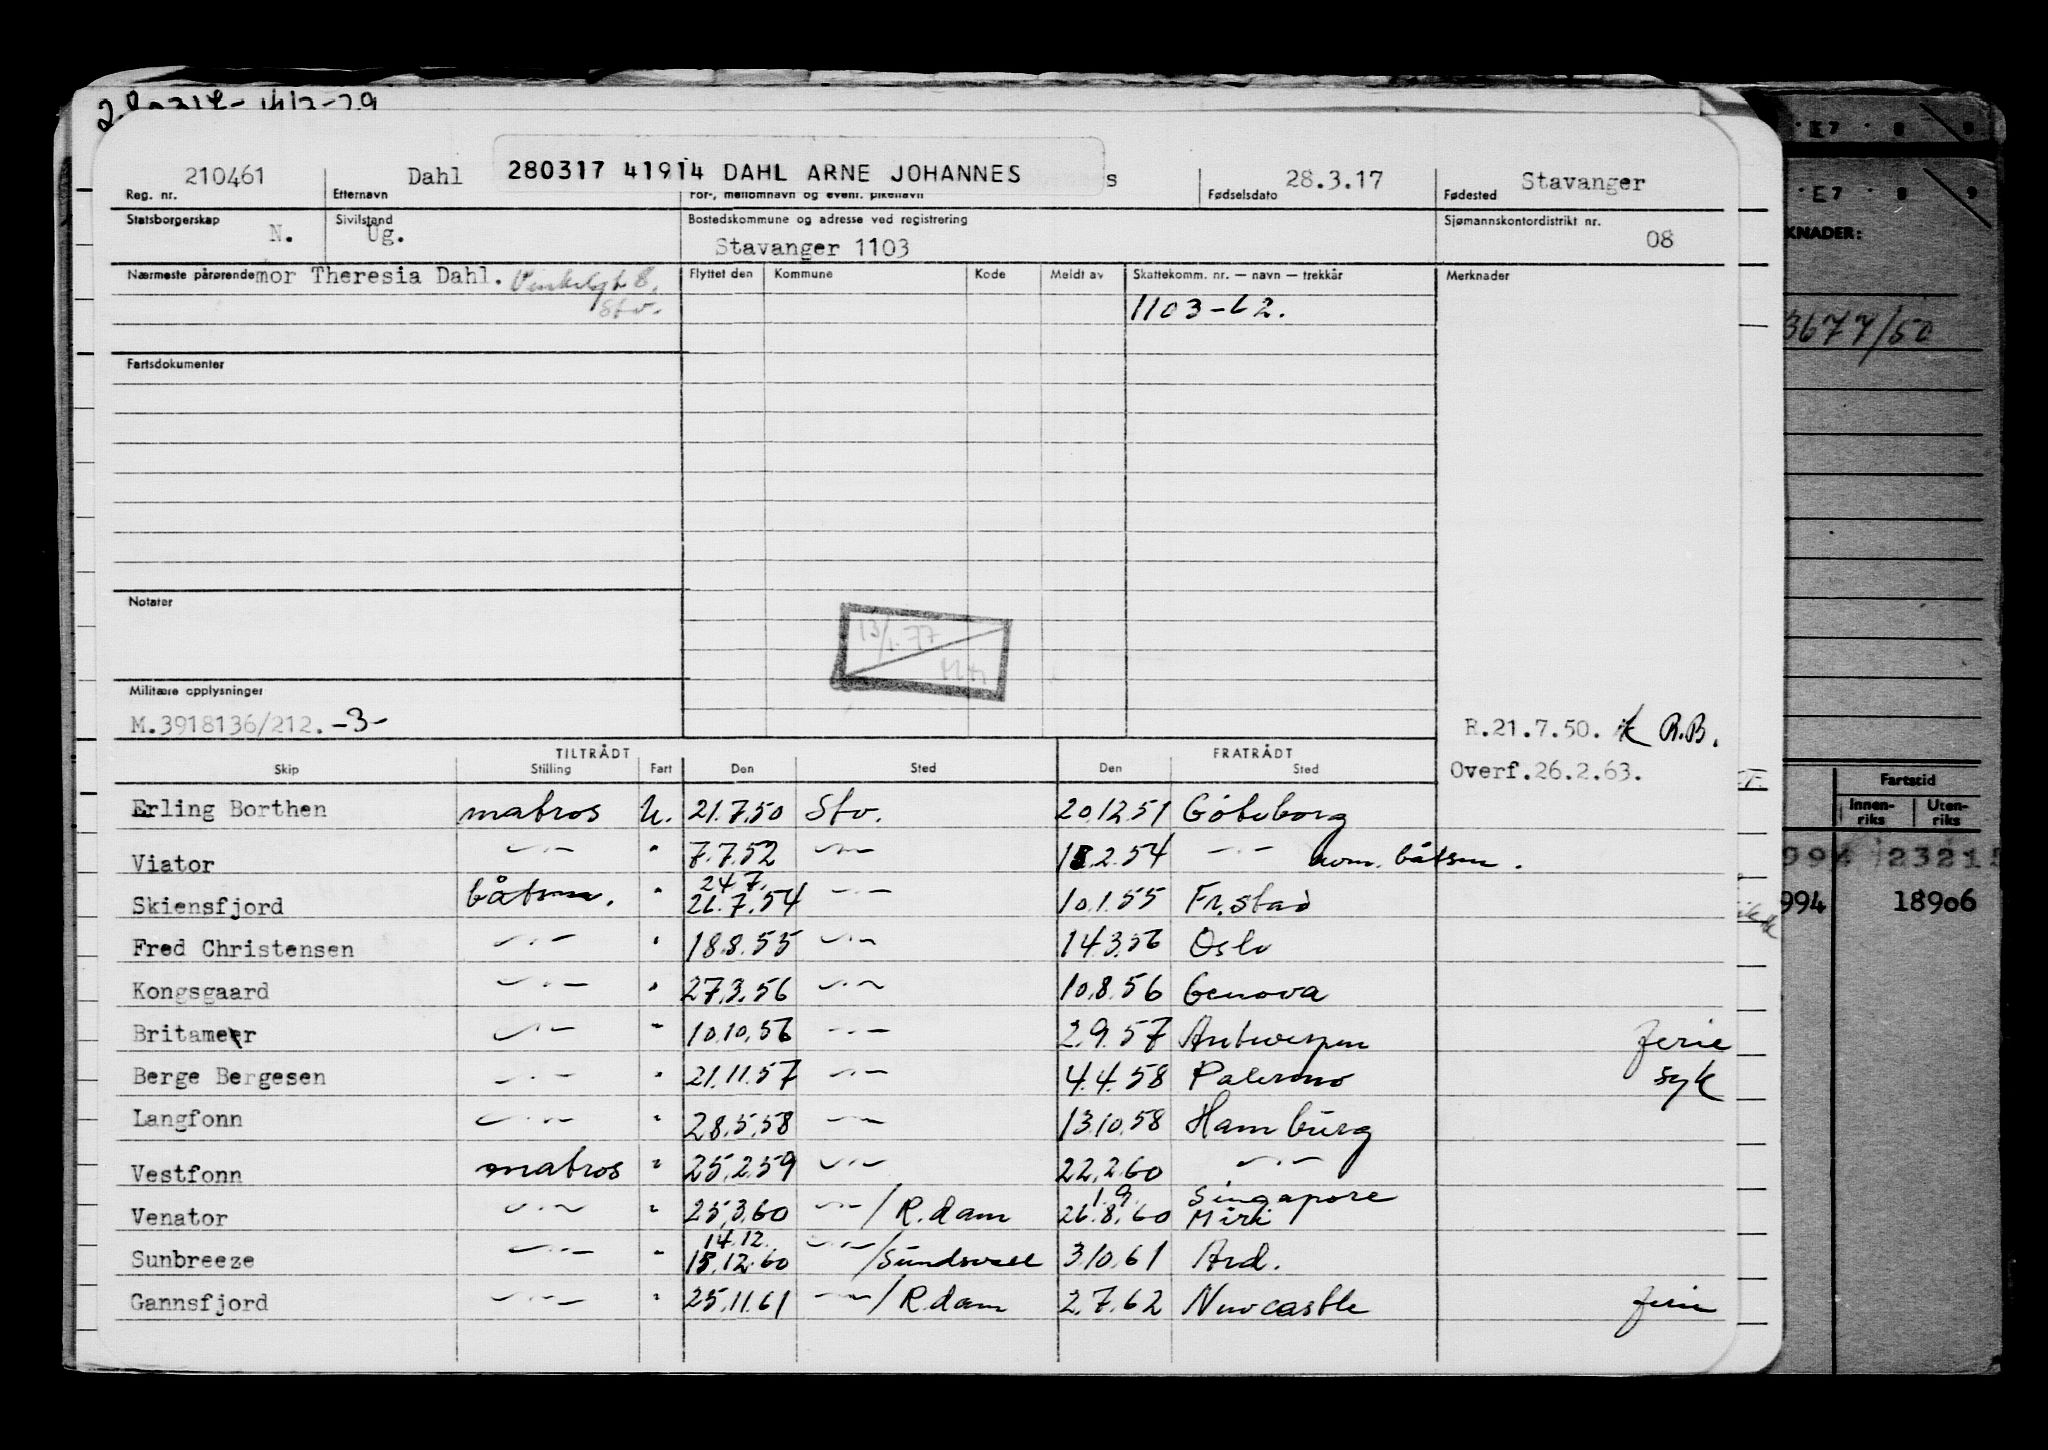 210461 Dahl 280317 41914 DAHL ARNE JOHANNES s 28.3.17 Stavanger
Reg. nr. Etternavn For-, mellomnavn og event. pikenavn Fødselsdato Fødested
Statsborgerskap N. Sivilstand Ug. Bostedskommune og adresse ved registrering Stavanger 1103 Sjømannskontordistrikt nr. 08
Nærmeste pårørende mor Theresia Dahl. Flyttet den Kommune Kode Meldt av Skattekomm. nr. — navn — trekkår Merknader
Stv. 1103-62.
Fartsdokumenter
Notater
13/1-77
Militære opplysninger
M.3918136/212. -3- R.21.7.50. R.B.
TILTRÅDT FRATRÅDT
Skip Stilling Fart Den Sted Den Sted Overf.26.2.63.
Erling Borthen matros U. 21.7.50 Stv. 20.12.51 Göteborg
Viator —"— " 7.7.52 —"— 18.2.54 —"— avm. båtsm.
24.7.
Skiensfjord båtsm. " 26.7.54 —"— 10.1.55 Fr.stad
Fred Christensen —"— " 18.8.55 —"— 14.3.56 Oslo
Kongsgaard —"— " 27.3.56 —"— 10.8.56 Genova
Britameer —"— " 10.10.56 —"— 2.9.57 Antwerpen ferie
Berge Bergesen —"— " 21.11.57 —"— 4.4.58 Palermo syk
Langfonn —"— " 28.5.58 —"— 13.10.58 Hamburg
Vestfonn matros " 25.2.59 —"— 22.2.60 —"—
1.9. Singapore
Venator —"— " 25.3.60 —"— / R.dam 26.8.60 Miri
14.12.
Sunbreeze —"— " 15.12.60 —"— / Sundsvall 3.10.61 Ard.
Gannsfjord —"— " 25.11.61 —"— / R.dam 2.7.62 Newcastle ferie
E7 8 9
E7 8 9
KNADER:
3677/50
Fartstid
Innen-riks Uten-riks
994 23215
994 18906